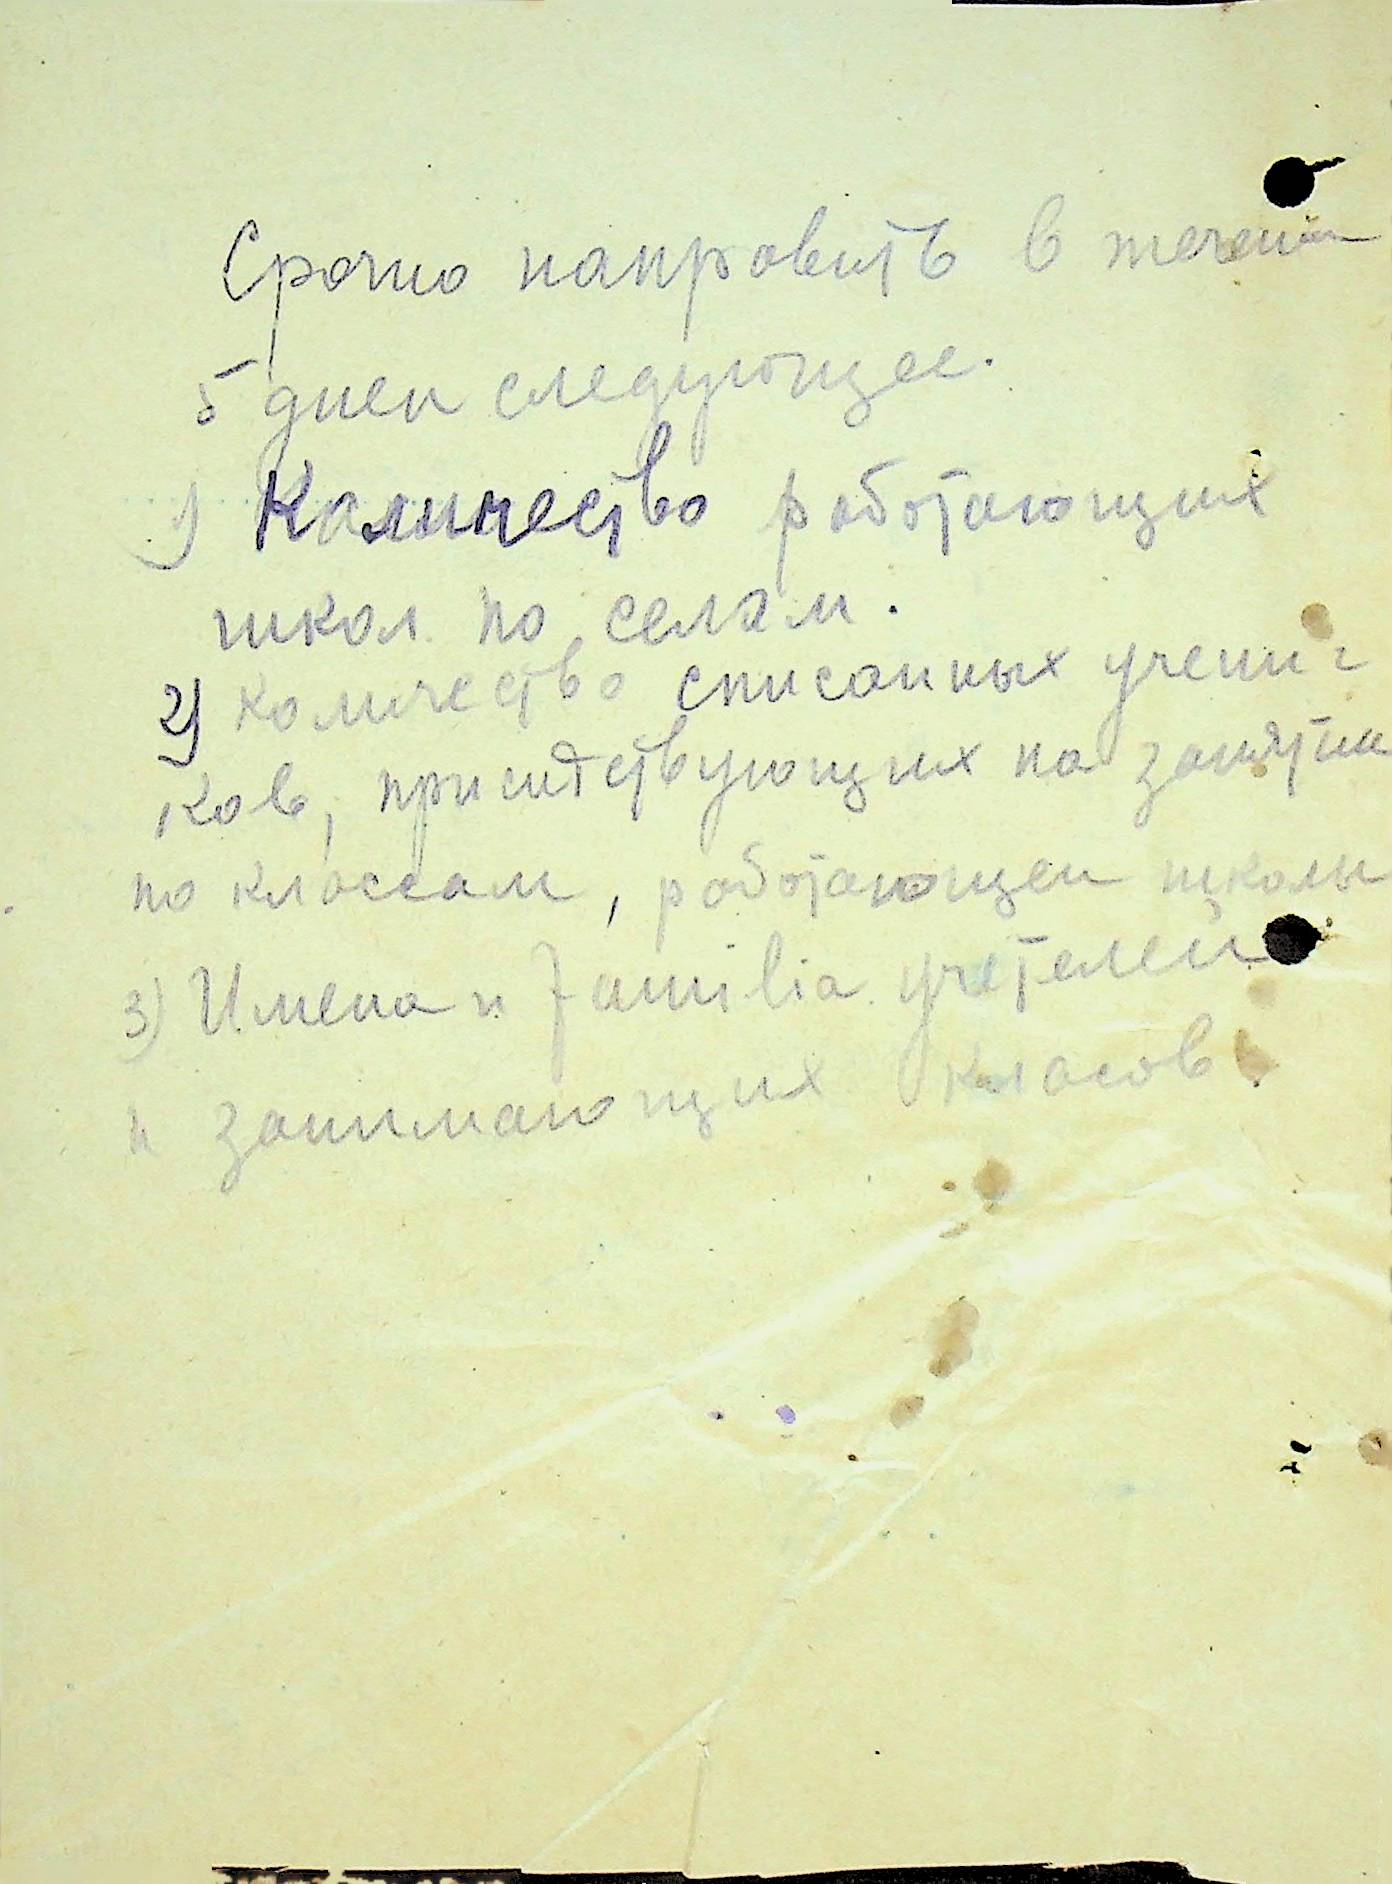 Срочно направить в течении
5 дней следующее.
1) Количество работающих
школ по селам.
2) количество списанных учени-
ков, присутствующих на занятии
по классам, работающей школы
3) Имена и Familia учетелей
и занимающих класов